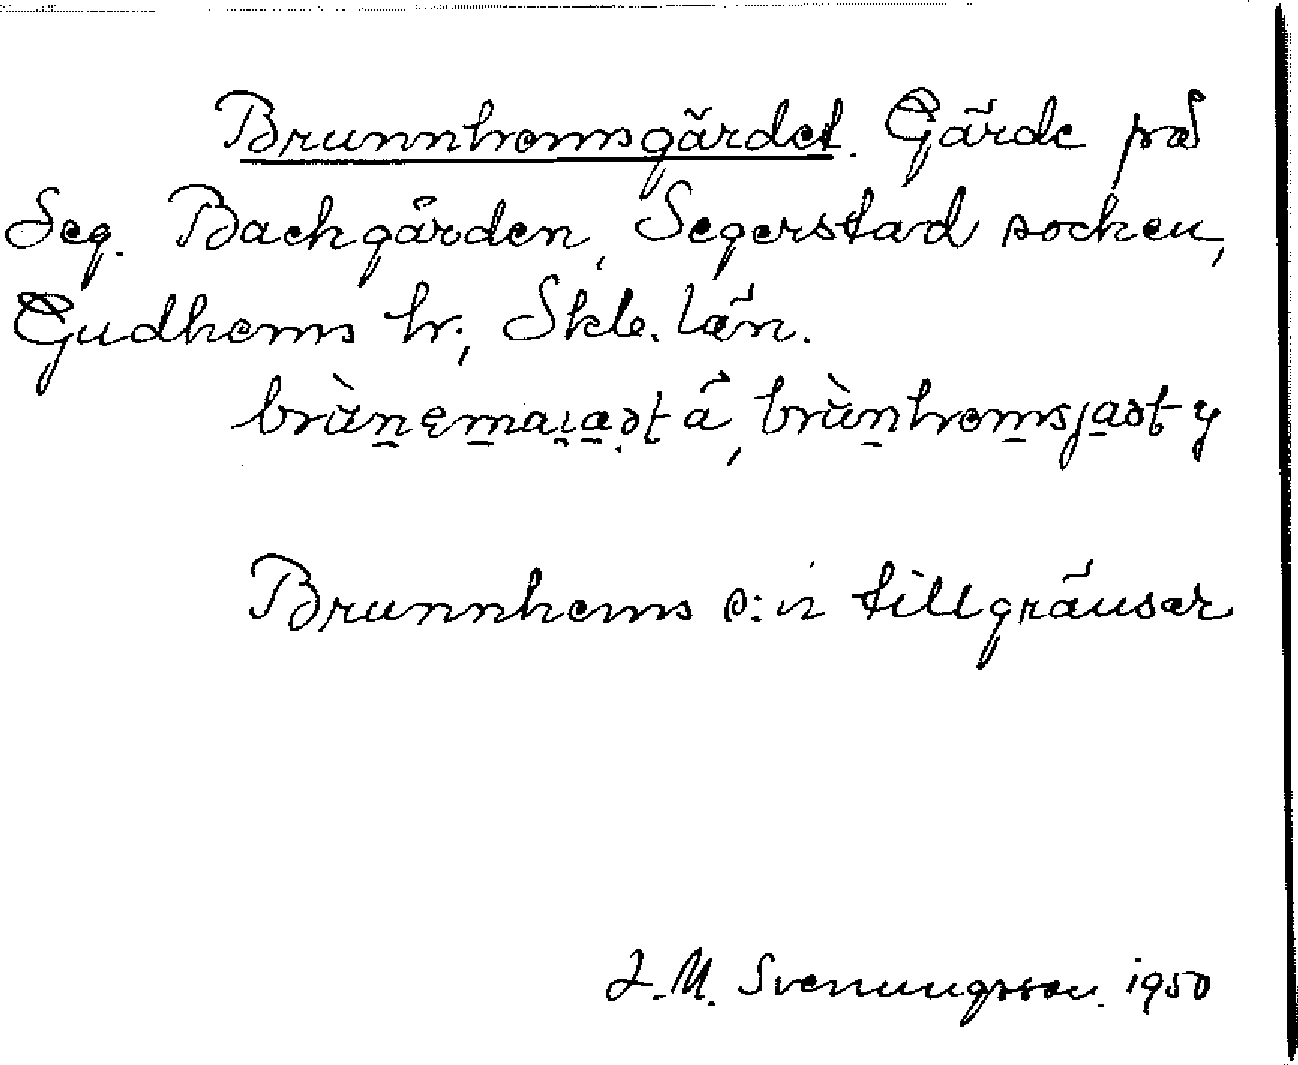 Brunnhemsgärdet. Gärde på
Seg. Backgården, Segerstad socken,
Gudhems hr, Skb. län.
Brunnhems s:n tillgränsar
J. M. Svenungsson. 1950